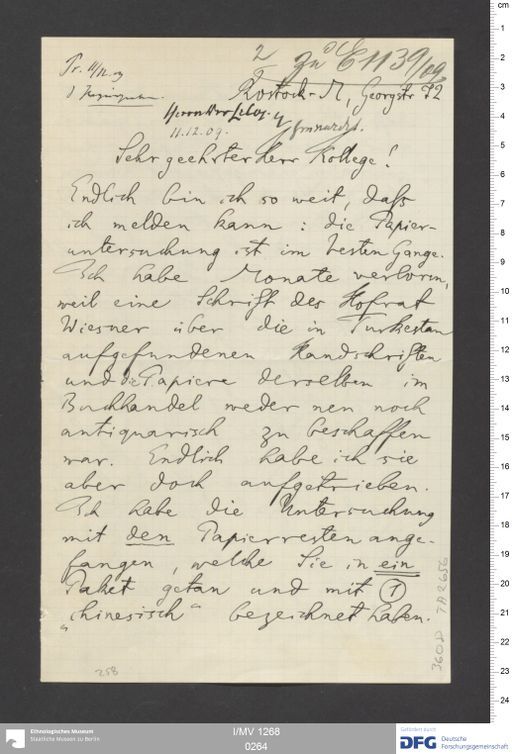 2
zu E 1139/09
Pr. 11/12. 09
Rostock-M, Georgstr 82
11.12.09.
Sehr geehrter Herr Kollege!
Endlich bin ich so weit, daß
ich melden kann: die Papier-
untersuchung ist im besten Gange.
Ich habe Monate verloren,
weil eine Schrift des Hofrat
Wiesner über die in Turkestan
aufgefundenen Handschriften
und die Papiere derselben im
Buchhandel weder neu noch
antiquarisch zu beschaffen
war. Endlich habe ich sie
aber doch aufgetrieben.
Ich habe die Untersuchung
mit den Papierresten ange-
fangen, welche Sie in ein
Paket getan und mit 1
„chinesisch“ bezeichnet haben.
258
360 D 7A2656
cm
1
2
3
4
5
6
7
8
9
10
11
12
13
14
15
16
17
18
19
20
21
22
23
24
Ethnologisches Museum
Staatliche Museen zu Berlin
I/MV 1268
0264
Gefördert durch
DFG Deutsche
Forschungsgemeinschaft